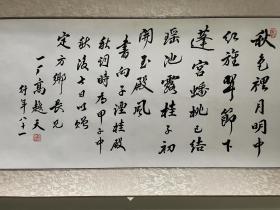 秋色裡月明中
红旌翠節下
蓬宫蟠桃已结
瑶池露桂子初
開玉殿風
書向子諲桂殿
秋詞時為甲子中
秋後七日以贈
定方鄉長兄
一廣高越天
時年八十一